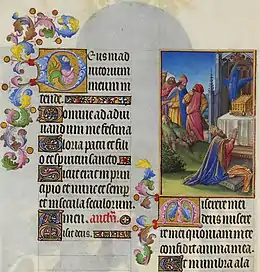 Deus in ad
iutorium
meum in
tende.
Domine ad adiu
uandum me festina
Gloria patri et filio
et spiritui sancto.
Sicut erat in prin
cipio et nunc et semp
et in secula seculorum
Amen.
Miserere mei
deus misere
re mei quoniam in te
confidit anima mea.
Et in umbra ala